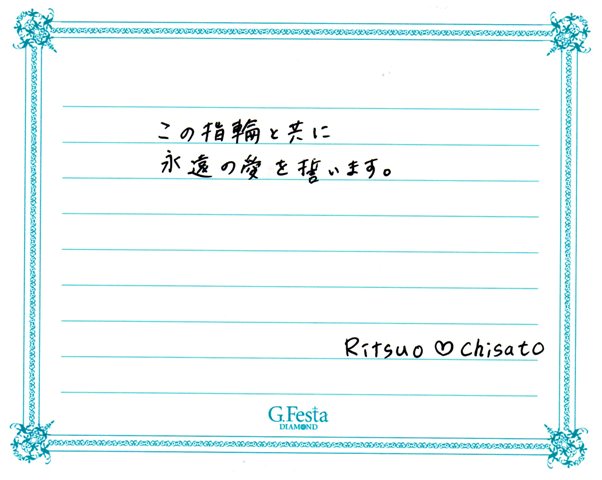 この指輪と共に
永遠の愛を誓います。
Ritsuo ♡ Chisato
G.Festa
DIAMOND